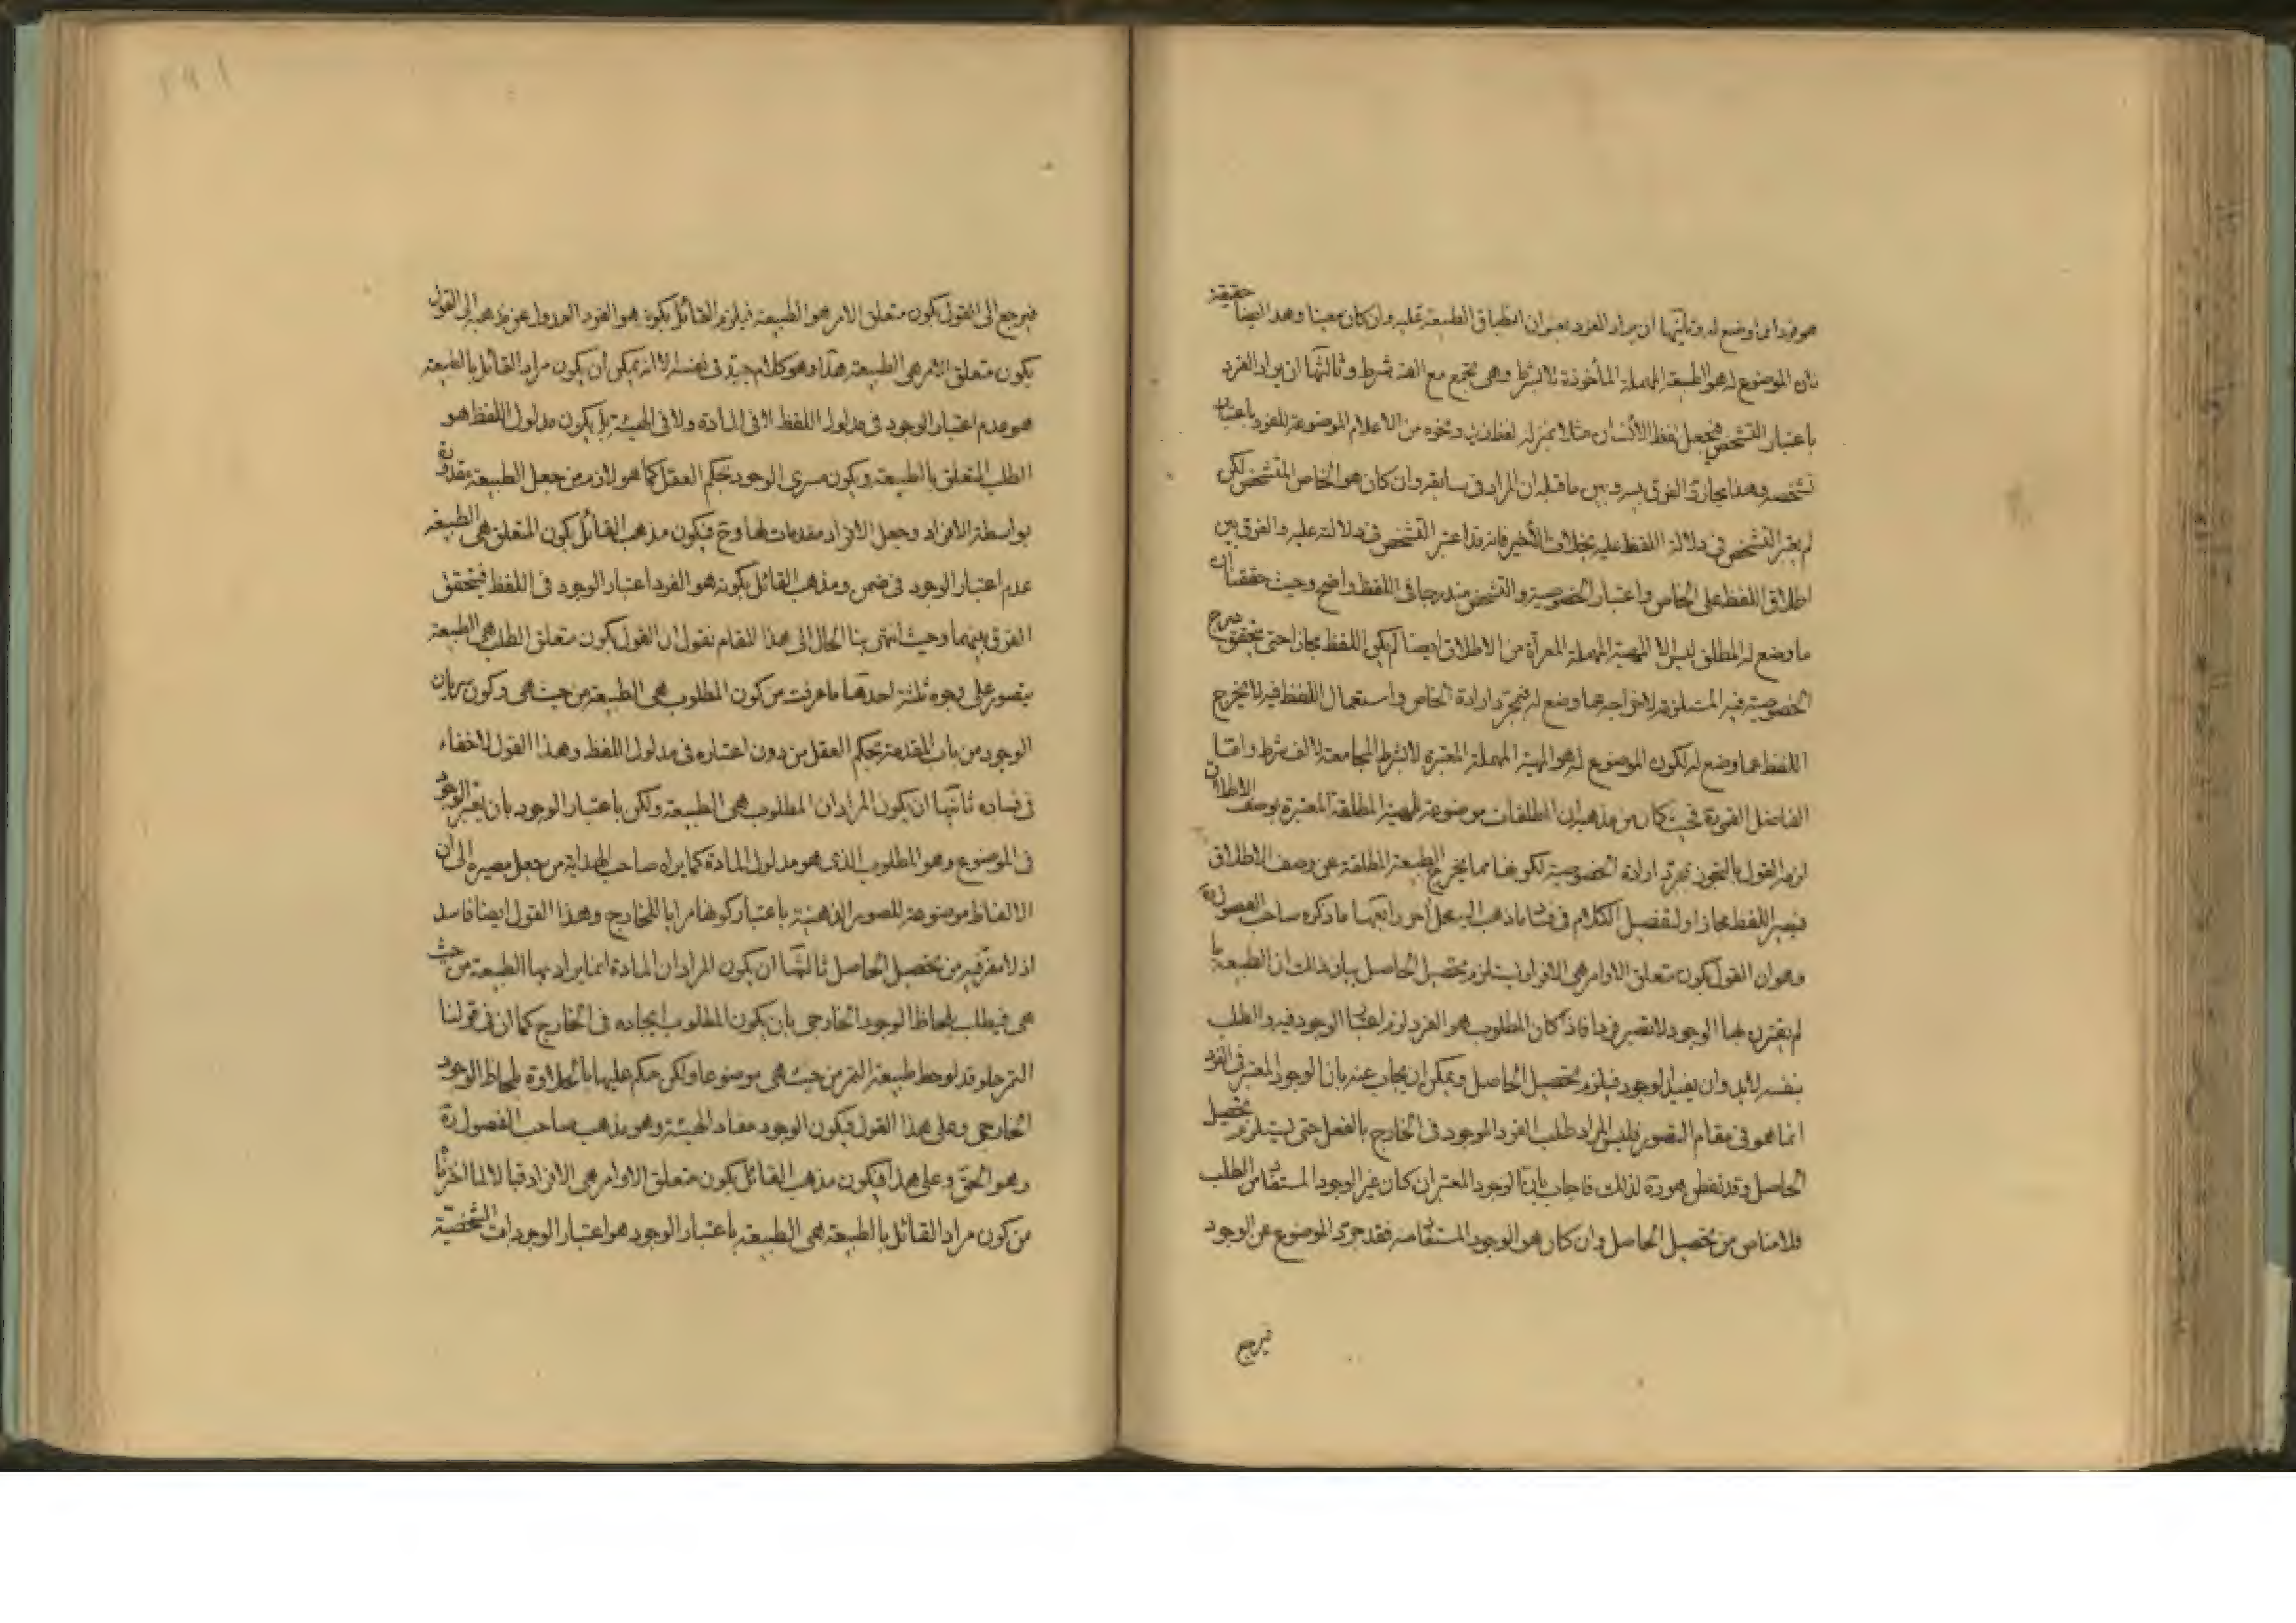 هو فرد لما وضع له وثانيها ان يراد الفرد بعنوان انطباق الطبيعة عليه وان كان معينا وهذا ايضا حقيقة
فان الموضوع له هو الطبيعة المهملة المأخوذة لا بشرط وهى تجتمع مع الف شرط وثالثها ان يراد الفرد
باعتبار التشخص فيجعل لفظ الانسان مثلا بمنزلة لفظ زيد ونحوه من الاعلام الموضوعة للفرد باعتبار
تشخصه وهذا مجاز والفرق بينه وبين ما قبله ان المراد فى سابقه وان كان هو الخاص المتشخص لكن
لم يعتبر التشخص فى دلالة اللفظ عليه بخلاف الأخير فانه قد اعتبر التشخص فى دلالته عليه والفرق بين
اطلاق اللفظ على الخاص واعتبار الخصوصية والتشخص مندرجا فى اللفظ واضح وحيث حققنا ان
ما وضع له المطلق ليس الا المهية المهملة المعرأة من الاطلاق ايضا لم يكن اللفظ مجازا حتى يتحقق
الخصوصية فيه المستلزمة لاخراجه عما وضع له فبمجرد ارادة الخاص واستعمال اللفظ فيه لا يخرج
اللفظ عما وضع له لكون الموضوع له هو المهية المهملة المعتبرة لا بشرط المجامعة لالف شرط واما
الفاضل القمى ره فحيث كان من مذهبه ان المطلقات موضوعة للمهية المطلقة المعتبرة بوصف الاطلاق
لزمه القول بالتجوز بمجرد ارادة الخصوصية لكونها مما يخرج الطبيعة المطلقة عن وصف الاطلاق
فيصير اللفظ مجازا ولتفصيل الكلام فى فساد ما ذهب اليه محل اخر رابعها ما ذكره صاحب الفصول ره
وهو ان القول بكون متعلق الاوامر هى الافراد يستلزم تحصيل الحاصل بيان ذالك ان الطبيعة ما
لم يقترن بها الوجود لا تصير فردا فاذا كان المطلوب هو الفرد لزم اعتبار الوجود فيه والطلب
بنفسه لابد وان يفيد الوجود فيلزم تحصيل الحاصل ويمكن ان يجاب عنه بان الوجود المعتبر فى الفرد
انما هو فى مقام التصور فليس المراد طلب الفرد الموجود فى الخارج بالفعل حتى يستلزم تحصيل
الحاصل وقد تفطن هو ره لذالك فاجاب بان الوجود المعتبر ان كان غير الوجود المستفاد من الطلب
فلا مناص من تحصيل الحاصل وان كان هو الوجود المستفاد منه فقد جرى الموضوع عن الوجود
فيرجع
فيرجع الى القول بكون متعلق الامر هو الطبيعة فيلزم القائل بكونه هو الفرد العدول عن مذهبه الى القول
بكون متعلق الامر هى الطبيعة هذا وهو كلام جيد فى نفسه الا انه يمكن أن يكون مراد القائل بالطبيعة
هو عدم اعتبار الوجود فى مدلول اللفظ لا فى المادة ولا فى الهيئة بل يكون مدلول اللفظ هو
الطلب المتعلق بالطبيعة ويكون مسرى الوجود بحكم العقل كما هو لازم من جعل الطبيعة مقدورة
بواسطة الافراد وجعل الافراد مقدمات لها وح فيكون مذهب القائل بكون المتعلق هى الطبيعة
عدم اعتبار الوجود فى ضمن ومذهب القائل بكونه هو الفرد اعتبار الوجود فى اللفظ فيتحقق
الفرق بينهما وحيث انتهى بنا الحال الى هذا المقام نقول ان القول بكون متعلق الطلب هى الطبيعة
يتصور على وجوه ثلثة احدها ما عرفت من كون المطلوب هى الطبيعة من حيث هى وكون سريان
الوجود من باب المقدمة بحكم العقل من دون اعتباره فى مدلول اللفظ وهذا القول لا خفاء
فى فساده ثانيها ان يكون المراد ان المطلوب هى الطبيعة ولكن باعتبار الوجود بان يعتبر الوجود
فى الموضوع وهو المطلوب الذى هو مدلول المادة كما يراه صاحب الهداية من جعل مصيره الى ان
الالفاظ موضوعة للصور الذهنية باعتبار كونها مرايا للخارج وهذا القول ايضا فاسد
اذ لا مفر فيه من تحصيل الحاصل ثالثها ان يكون المراد ان المادة انما يراد بها الطبيعة من حيث
هى فيطلب بلحاظ الوجود الخارجى بان يكون المطلوب ايجاده فى الخارج كما ان فى قولنا
التمر حلو قد لوحظ طبيعة التمر من حيث هى موضوعا ولكن حكم عليها بالحلاوة بلحاظ الوجود
الخارجى وعلى هذا القول فيكون الوجود مفاد الهيئة وهو مذهب صاحب الفصول ره
وهو الحق وعلى هذا فيكون مذهب القائل بكون متعلق الاوامر هى الافراد قبالا لما اخترنا
من كون مراد القائل بالطبيعة هى الطبيعة باعتبار الوجود هو اعتبار الوجودات الشخصية